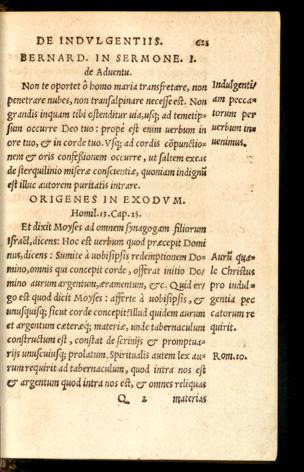 DE INDVLGENTIIS. 621
BERNARD. IN SERMONE. I.
de Aduentu.
Non te oportet ô homo maria transfretare, non
penetrare nubes, non transalpinare necesse est. Non
grandis inquam tibi ostenditur uia, usq; ad temetip-
sum occurre Deo tuo: propè est enim uerbum in
ore tuo, & in corde tuo. Vsq; ad cordis cõpunctio-
nem & oris confeßionem occurre, ut saltem exeas
de sterquilinio miseræ conscientiæ, quoniam indignũ
est illuc autorem puritatis intrare.
Indulgentiã
am pecca-
torum per
uerbum in-
uenimus.
ORIGENES IN EXODVM.
Homil. 13. Cap. 25.
Et dixit Moyses ad omnem synagogam filiorum
Israël, dicens: Hoc est uerbum quod præcepit Domi
nus, dicens: Sumite à uobisipsis redemptionem Do-
mino, omnis qui concepit corde, offerat initio Do-
mino aurum argentum, æramentum, &c. Quid er-
go est quod dicit Moyses: afferte à uobisipsis, &
unusquisq; sicut corde concepit? illud quidem aurum
et argentum cæteraq; materiæ, unde tabernaculum
constructum est, constat de scrinijs & promptua-
rijs uniuscuiusq; prolatum. Spiritualis autem lex au-
rum requirit ad tabernaculum, quod intra nos est
& argentum quod intra nos est, & omnes reliquas
Aurũ qua-
le Christus
pro indul-
gentia pec
catorum re
quirit.
Rom. 10.
Q 2 materias